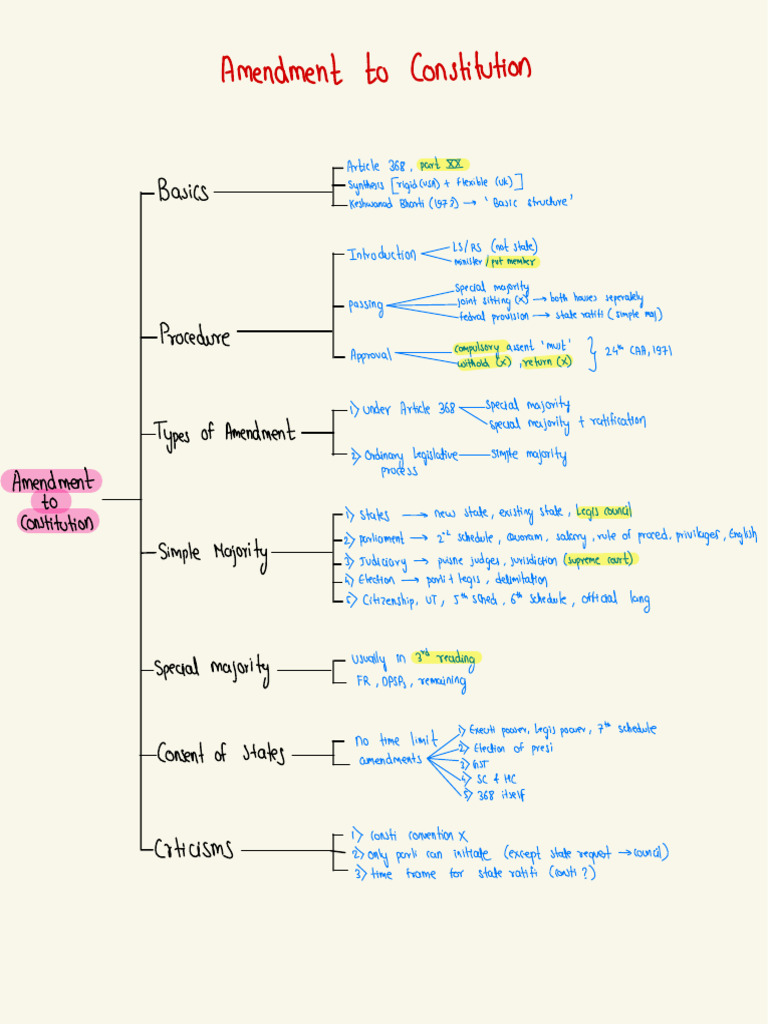 Amendment to Constitution
Amendment
to
Constitution
Basics
Article 368, part XX
Synthesis [rigid (USA) + flexible (UK)]
Keshwanad Bharti (1973) → 'Basic structure'
Procedure
Introduction
LS/RS (not state)
minister / pvt member
passing
special majority
joint sitting (x) → both houses seperately
federal provision → state ratifi (simple maj)
Approval
compulsory assent 'must'
withold (x), return (x)
24th CAA, 1971
Types of Amendment
1) under Article 368
special majority
special majority + ratification
2) Ordinary legislative
process
simple majority
Simple Majority
1) states → new state, existing state, Legis council
2) parliament → 2nd schedule, Quoram, salary, rule of proced, privilages, English
3) Judiciary → puisne judges, jurisdiction (supreme court)
4) Election → parli + legis, delimitation
5) Citizenship, UT, 5th sched, 6th schedule, official lang
Special majority
usually in 3rd reading
FR, DPSPs, remaining
Consent of states
no time limit
amendments
1) Executi power, Legis power, 7th schedule
2) Election of presi
3) GST
4) SC & HC
5) 368 itself
Crticisms
1) consti convention X
2) only parli can initiate (except state request → council)
3) time frame for state ratifi (consti?)